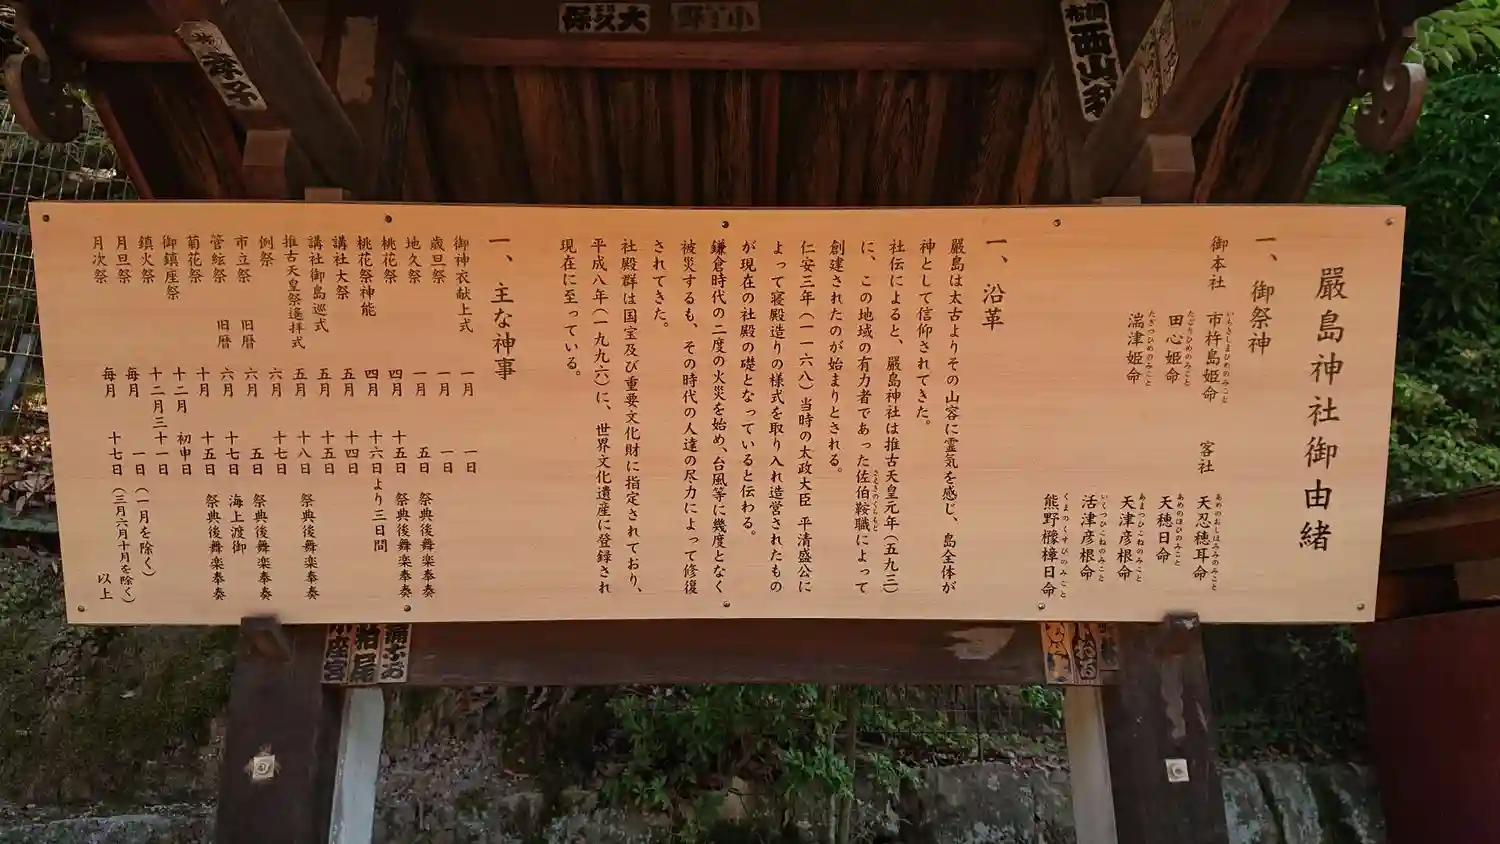 嚴島神社御由緒
一、御祭神
御本社
市杵島姫命
いちきしまひめのみこと
田心姫命
たごりひめのみこと
湍津姫命
たぎつひめのみこと
客社
天忍穂耳命
あめのおしほみみのみこと
天穂日命
あめのほひのみこと
天津彦根命
あまつひこねのみこと
活津彦根命
いくつひこねのみこと
熊野櫲樟日命
くまのくすびのみこと
一、沿革
嚴島は太古よりその山容に霊気を感じ、島全体が
神として信仰されてきた。
社伝によると、嚴島神社は推古天皇元年(五九三)
に、この地域の有力者であった佐伯鞍職によって
さえきのくらもと
創建されたのが始まりとされる。
仁安三年(一一六八)当時の太政大臣 平清盛公に
よって寝殿造りの様式を取り入れ造営されたもの
が現在の社殿の礎となっていると伝わる。
鎌倉時代の二度の火災を始め、台風等に幾度となく
被災するも、その時代の人達の尽力によって修復
されてきた。
社殿群は国宝及び重要文化財に指定されており、
平成八年(一九九六)に、世界文化遺産に登録され
現在に至っている。
一、主な神事
御神衣献上式 一月 一日
歳旦祭 一月 一日
地久祭 一月 五日 祭典後舞楽奉奏
桃花祭 四月 十五日 祭典後舞楽奉奏
桃花祭神能 四月 十六日より三日間
講社大祭 五月 十四日
講社御島巡式 五月 十五日
推古天皇祭遙拝式 五月 十八日 祭典後舞楽奉奏
例祭 六月 十七日
市立祭 旧暦 六月 五日 祭典後舞楽奉奏
管絃祭 旧暦 六月 十七日 海上渡御
菊花祭 十月 十五日 祭典後舞楽奉奏
御鎮座祭 十二月 初申日 祭典後舞楽奉奏
鎮火祭 十二月三十一日
月旦祭 毎月 一日(一月を除く)
月次祭 毎月 十七日(三月六月十月を除く)
以上
大久保
小野
西山